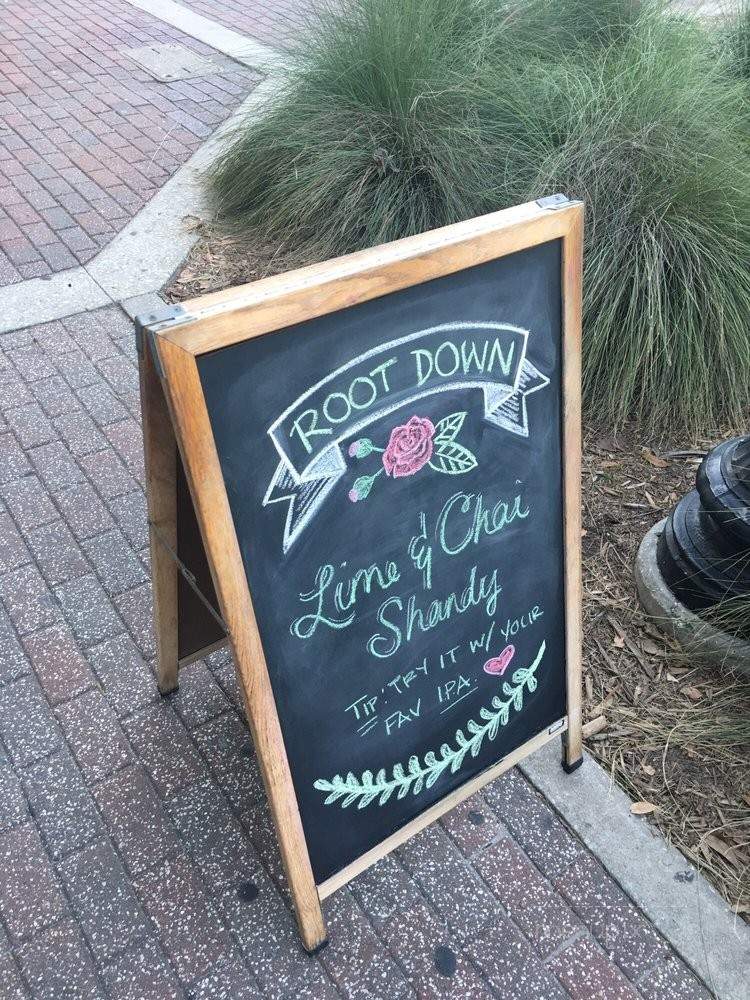 ROOT DOWN
Lime & Chai
Shandy
TIP: TRY IT W/ YOUR
FAV IPA.